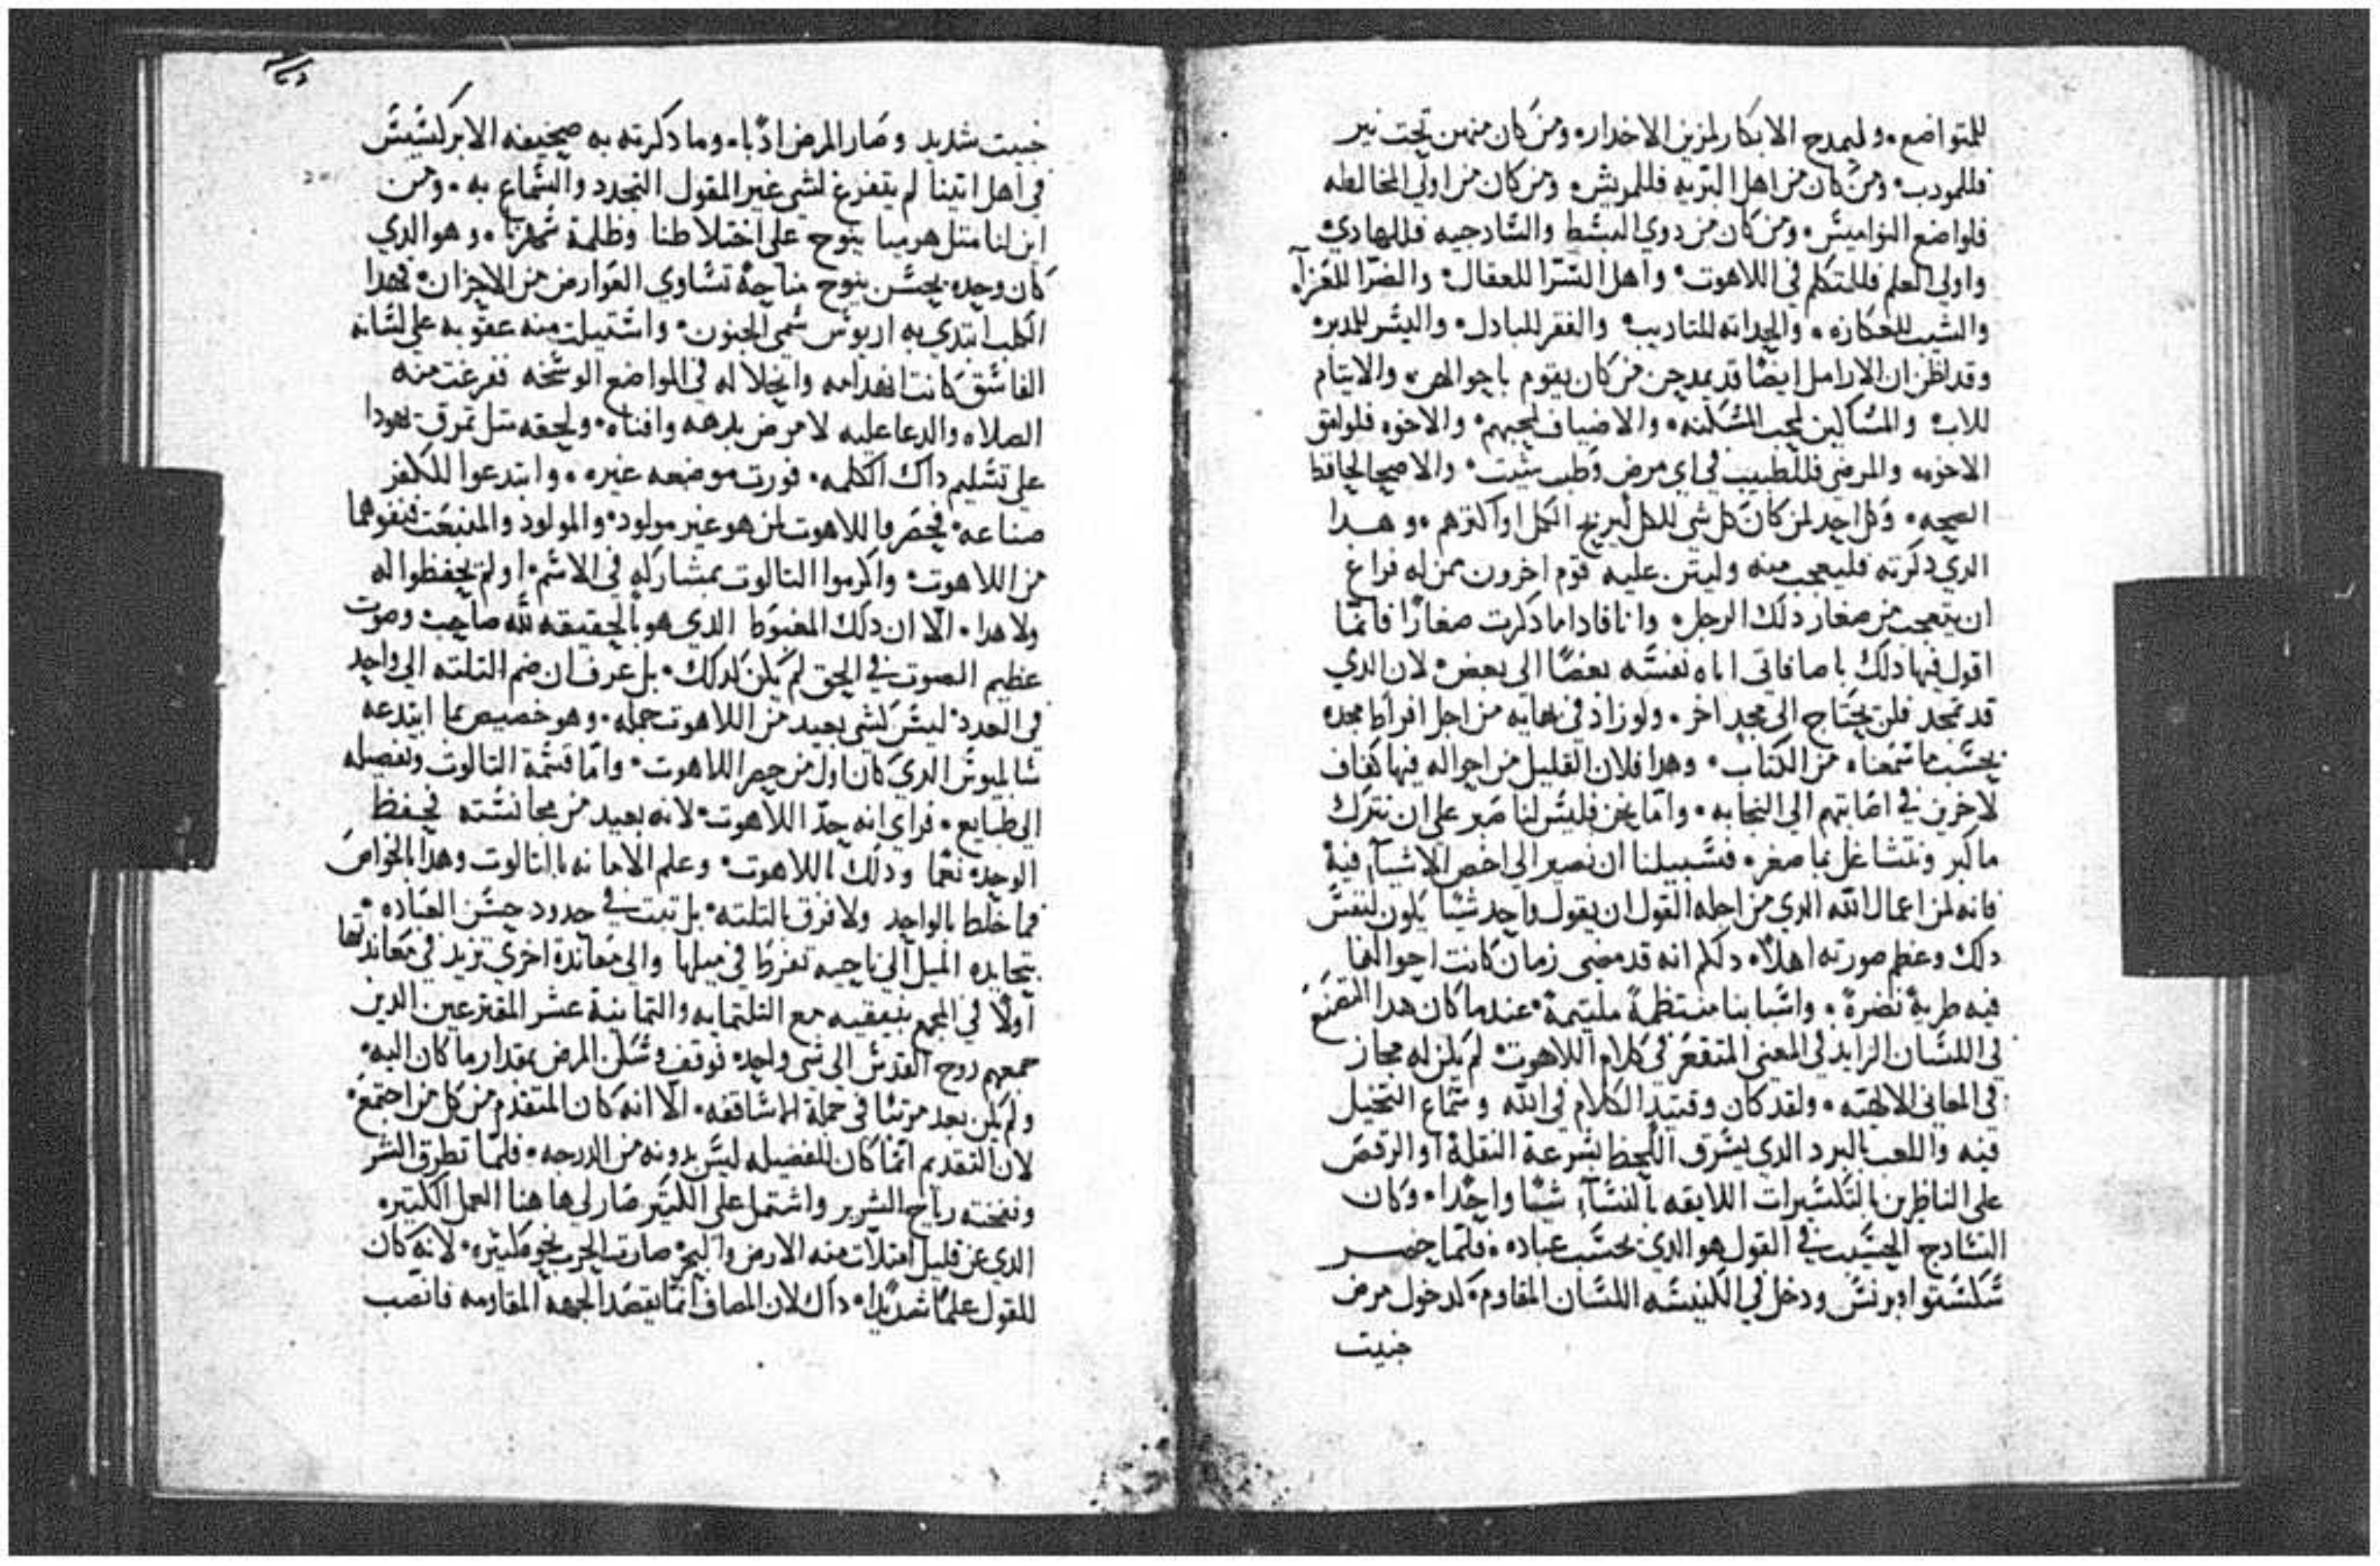 للمتواضع. وليمدح الابكار لمزين الاخدار. ومن كان منهن تحت نير
فللمودب. ومن كان من اهل البريه فللمريش. ومن كان من اولي المخالطه
فلواضع النواميس. ومن كان من دوي البسط والسادجيه فللهادي.
واولي العلم فللمتكلم في اللاهوت. واهل السرا للعقال. والضرا للعزآ.
والشيب للعكازه. والحداثه للتاديب. والفقر للمبادل. واليسر للمدبر.
وقد اظن ان الارامل ايضًا قد يمدحن من كان يقوم باحوالهن. والايتام
للاب. والمساكين لمحب المسكنه. والاضياف لمحبهم. والاخوه فلوامق
الاخوه. والمرضي فللطبيب في اي مرض وطب شيت. والاصحا لحافظ
الصحه. وكل احد لمن كان كل شي للكل ليربح الكل او اكثرهم. وهدا
الدي دكرته فليعجب منه وليثن عليه قوم اخرون ممن له فراغ
ان يتعجب من صغار دلك الرجل. وانا فادا ما دكرت صغارًا فانما
اقول فيها دلك باضافاتي اياه نفسه بعضًا الي بعض. لان الدي
قد تمجد فلن يحتاج الي مجد اخر. ولو زاد في نهايه من اجل افراط مجده
بحسب ما سمعناه من الكتاب. وهدا فلان القليل من احواله فيها كفاف
لاخرين في اصابتهم الي النجابه. واما نحن فليس لنا صبر علي ان نترك
ما كبر ونتشاغل بما صغر. فسبيلنا ان نصير الي اخص الاشيآ فيه.
فانه لمن اعمال الله الدي من اجله القول ان يقول واحد شيئًا يكون لنفس
دلك وعظم صورته اهلًا. دلكم انه قد مضي زمان كانت احوالنا
فيه طريةً نضرةً. واسبابنا منتظمةً ملتيمةً. عندما كان هدا المتصنع
في اللسان الزايد في المعني المتقعر في كلام اللاهوت. لم يكن له مجاز
في المعاني الالهيه. ولقد كان وقتيدٍ الكلام في الله وسماع التخيل
فيه واللعب بالبرد الدي يسرق اللحظ بسرعة النقلة او الرقص
علي الناظرين بالتكسيرات اللايقه بالنسآ. شيئًا واحدًا. وكان
السادج الحسيب في القول هو الدي يحسب عباده. فلما حضر
سكستو اوبرنس ودخل في الكنيسه اللسان المقاوم. كدخول مرض
خبيت
خبيت شديد وصار المرض ادبًا. وما دكرته به صحيفه الابركسيس
في اهل اتينا لم يتفرغ لشي غير المقول التجدد والسماع به. ومن
اين لنا متل هرميا ينوح علي اختلاطنا وظلمة ثمرنا. وهو الدي
كان وحده يحسن ينوح مناحةً تساوي العوارض من الاحزان. فهدا
الكلب ابتدي به اريوس سمي الجنون. واستبلت منه عقوبه علي لسانه
الفاسق كانت انهدامه وانحلاله في المواضع الوسخه ففرغت منه
الصلاه والدعا عليه لا مرض بدرهه وافناه. ولحقه متل تمرق يهودا
علي تسليم داك الكلمه. فورت موضعه غيره. وابتدعوا للكفر
صناعه. فحصروا اللاهوت لمن هو غير مولود. والمولود والمنبعت فنفوهما
من اللاهوت. واكرموا التالوت بمشاركه في الاسم. او لم يحفظوا له
ولا هدا. الا ان دلك المغبوط الدي هو بالحقيقه لله صاحب وصوت
عظيم الصوت في الحق لم يكن كدلك. بل عرف ان ضم التلته الي واحد
في العدد. ليس لشي بعيد من اللاهوت جمله. وهو خصيص بما ابتدعه
ساليوس الدي كان اول من حصر اللاهوت. واما قسمة التالوت وتفصيله
الي طبايع. فراي انه حدّ اللاهوت. لانه بعيد من مجانسته فحفظ
الوحده نعمًا ودلك باللاهوت. وعلم الامانه بالتالوت وهدا بالخواص
فما خلط بالواحد ولا فرق بالتلته. بل تبت في حدود حسن العباده.
بتحايده الميل الي ناحيه تفرط في ميلها والي معاندة اخري تزيد في معاندتها
اولًا في المجمع بنيقيه مع التلتمايه والتمانية عشر المقترعين الدين
جمعهم روح القدس الي شي واحد. توقف وسكن المرض بمقدار ما كان اليه.
ولم يكن بعد مرتبًا في جملة الاساقفه. الا انه كان المتقدم من كل من اجتمع.
لان التقديم انما كان للفضيله ليس بدونه من الدرجه. فلما تطرق الشر
ونفخته رياح الشرير واشتمل علي الكثير صار لي هاهنا العمل الكتيره
الدي عن قليل امتلات منه الارض والبحر. صارت الحرب نحوه كتيره. لانه كان
للقول علمًا شديدًا. داك لان المصاف انما يقصد الجهه المقاومه فانصب